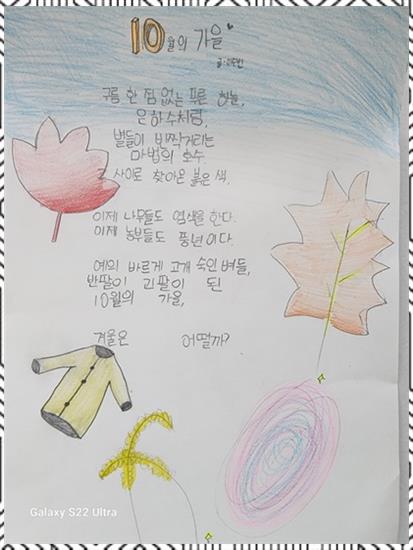 10월의 가을
글:이수빈
구름 한 점 없는 푸른 하늘,
은하수처럼,
별들이 반짝거리는
마법의 호수.
그 사이로 찾아온 붉은 색,
이제 나무들도 염색을 한다.
이제 농부들도 풍년이다.
예의 바르게 고개 숙인 벼들,
반팔이 긴팔이 된
10월의 가을,
겨울은 어떨까?
Galaxy S22 Ultra